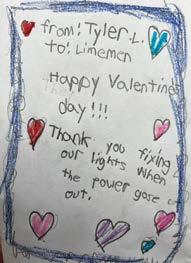 from: Tyler.L.
to: Linemen
Happy Valentines
day!!!
Thank you fixing
our lights when
the power gose
out.